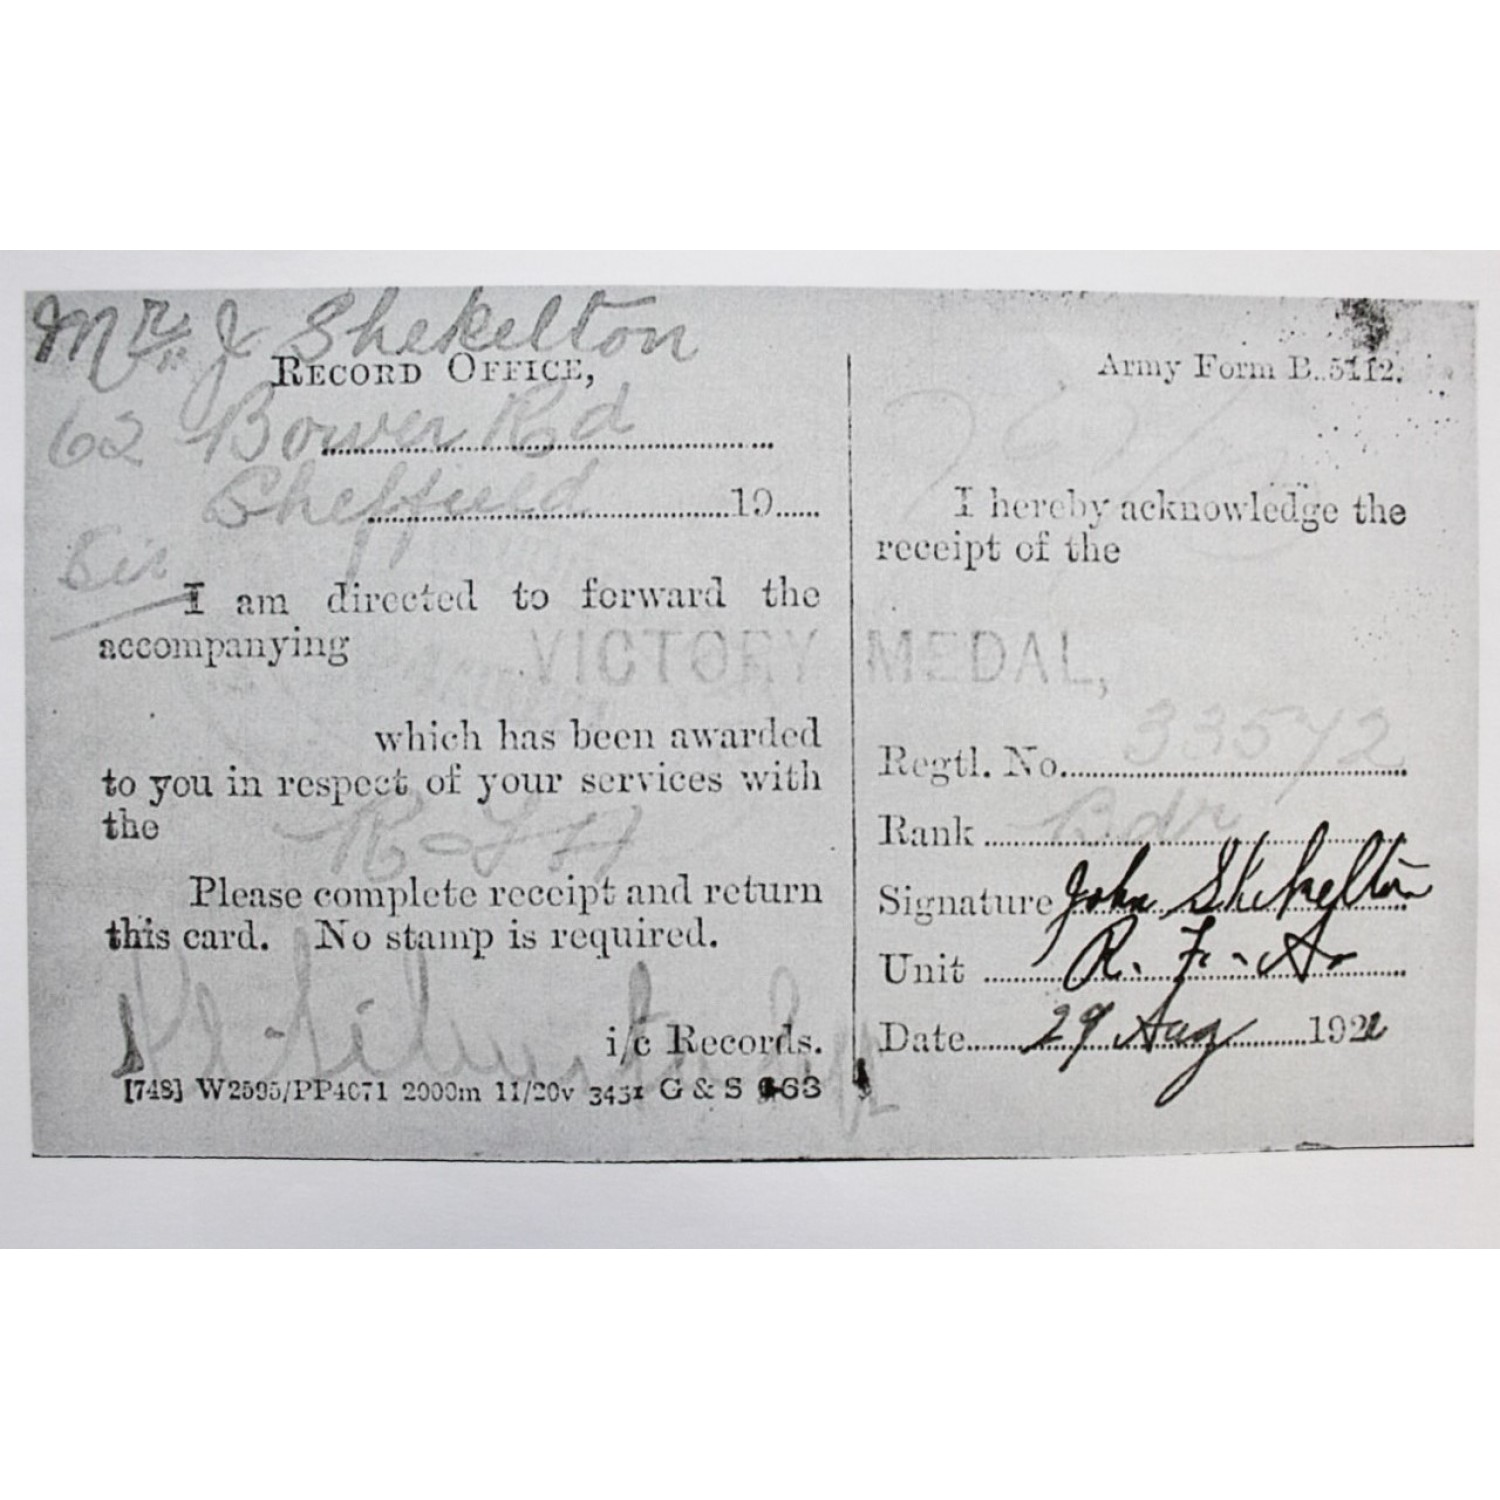 Mr. J Shekelton
RECORD OFFICE,
62 Bower Rd
Sheffield 19
Sir
I am directed to forward the
accompanying VICTORY MEDAL,
which has been awarded
to you in respect of your services with
the R.F.A
Please complete receipt and return
this card. No stamp is required.
i/c Records.
[748] W2595/PP4071 2000m 11/20v 3431 G & S 163
Army Form B. 5112.
I hereby acknowledge the
receipt of the
Regtl. No. 33572
Rank Bdr
Signature John Shekelton
Unit R. F. A.
Date 29 Aug 1921